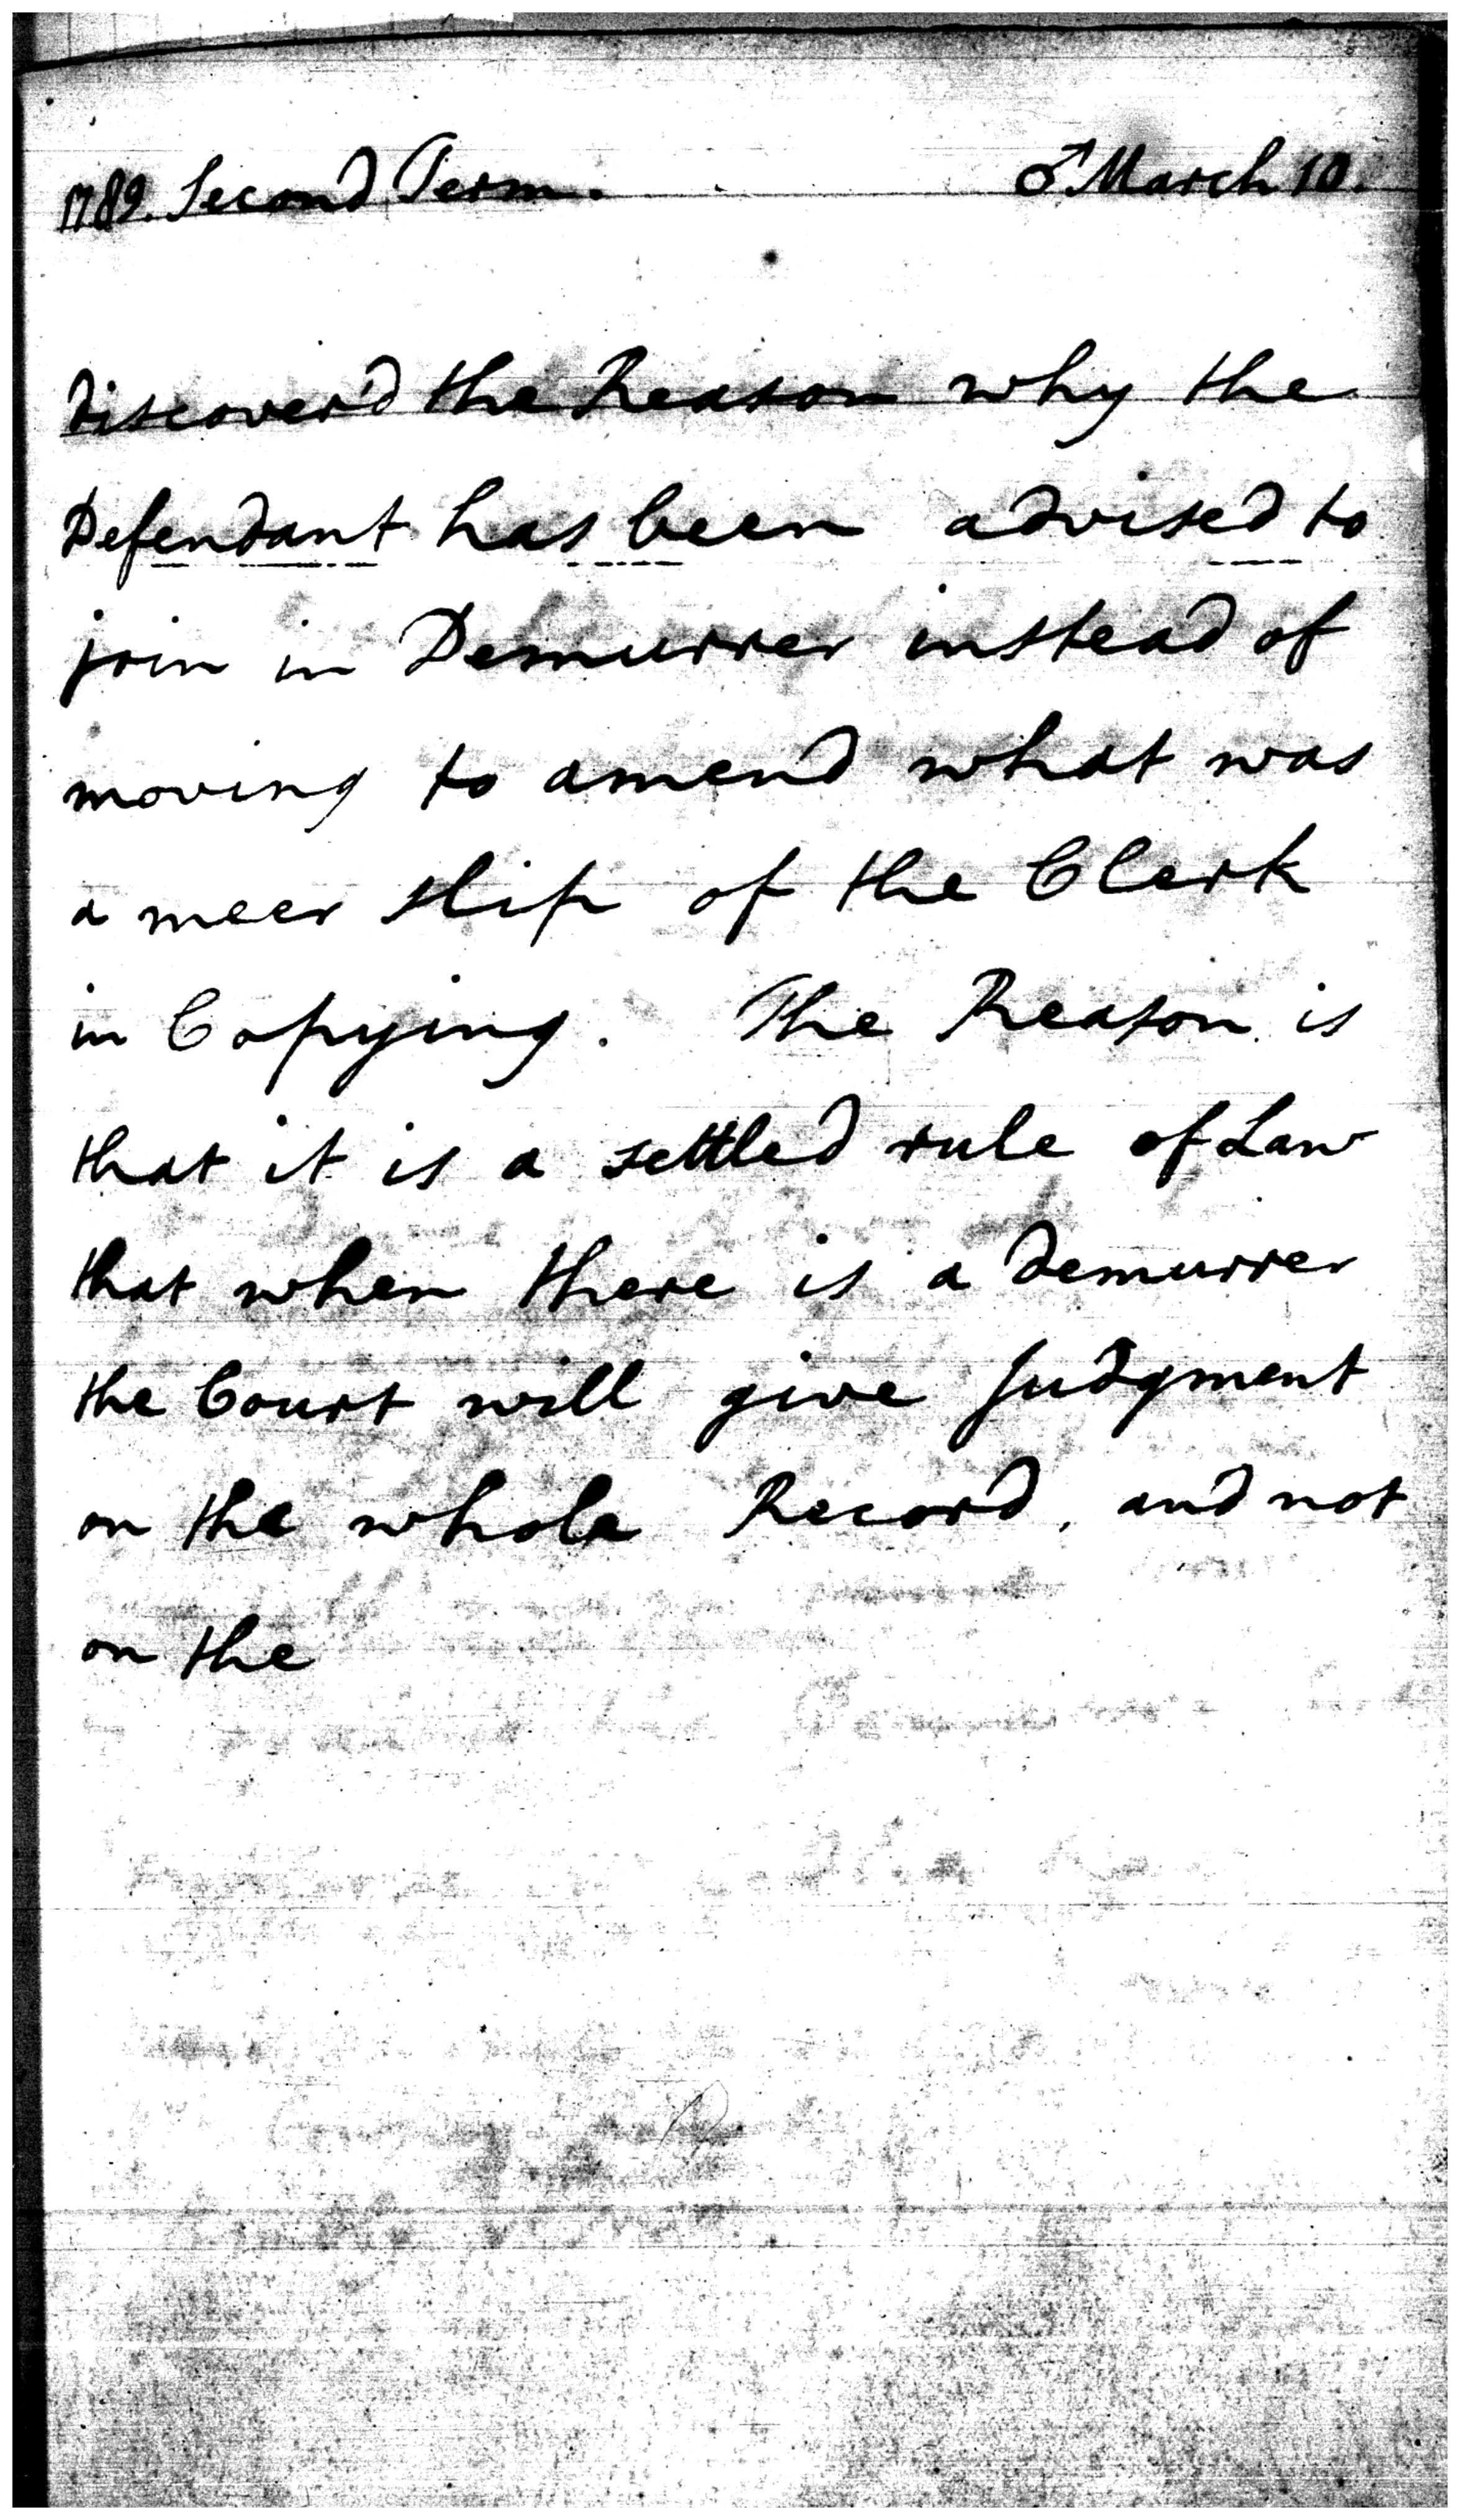 1789. Second Term. ♂ March 10.
discover'd the Reason why the
Defendant has been advised to
join in Demurrer instead of
moving to amend what was
a meer slip of the Clerk
in Copying. The Reaſon is
that it is a settled rule of Law
that when there is a demurrer
the Court will give Judgment
on the whole Record, and not
on the